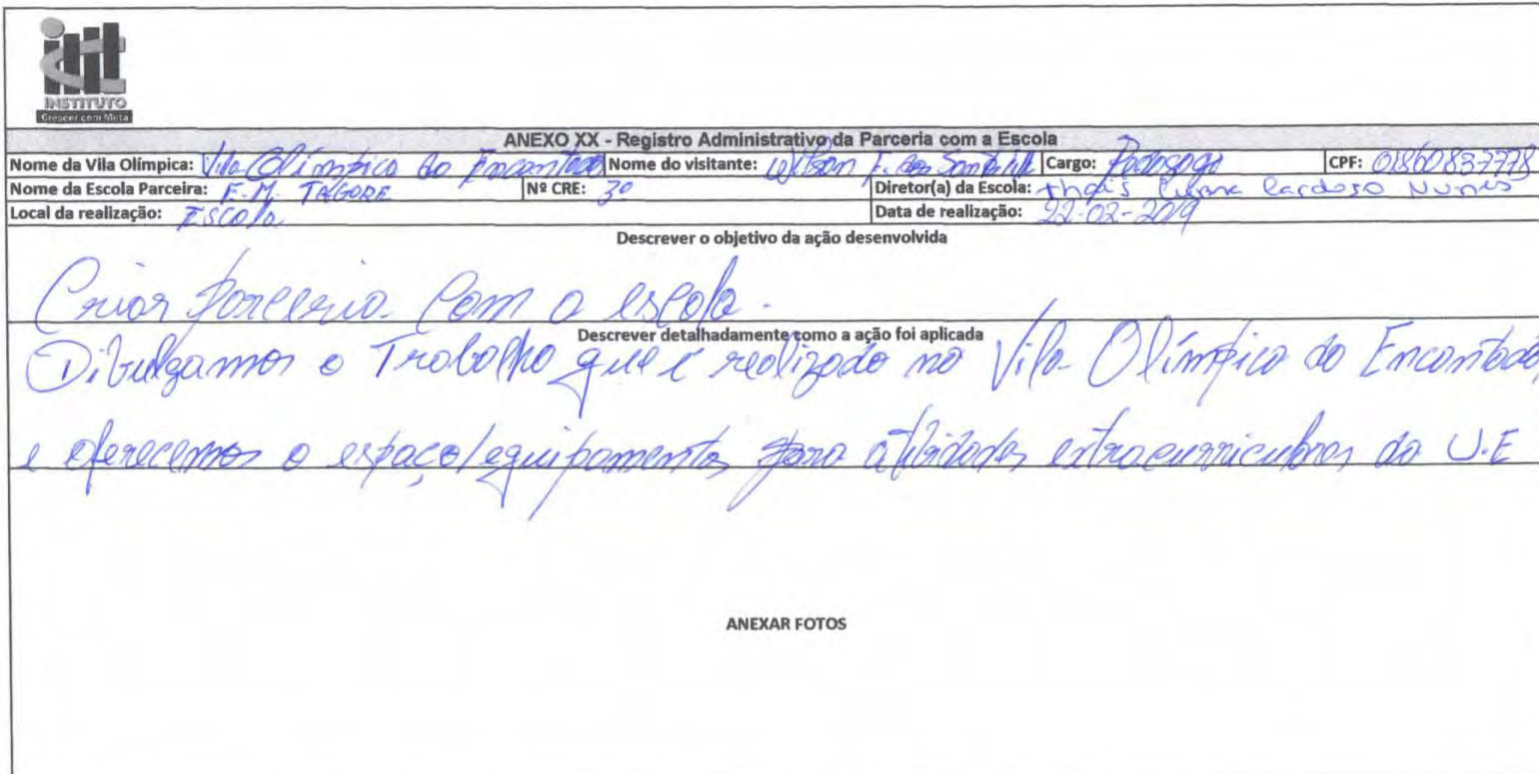 INSTITUTO
Crescer com Meta
ANEXO XX - Registro Administrativo da Parceria com a Escola
Nome da Vila Olímpica: Vila Olímpica do Encantado Nome do visitante: Wilson F. dos Cargo: Pedagogo CPF:
Nome da Escola Parceira: E.M. TAGORE Nº CRE: 3º Diretor(a) da Escola: thais Cardoso Nunes
Local da realização: Escola Data de realização: 22-02-2019
Descrever o objetivo da ação desenvolvida
Criar parceria com a escola.
Descrever detalhadamente como a ação foi aplicada
Divulgamos o Trabalho que é realizado na Vila Olímpica do Encantado,
e oferecemos o espaço/equipamentos para atividades extracurriculares da U.E
ANEXAR FOTOS